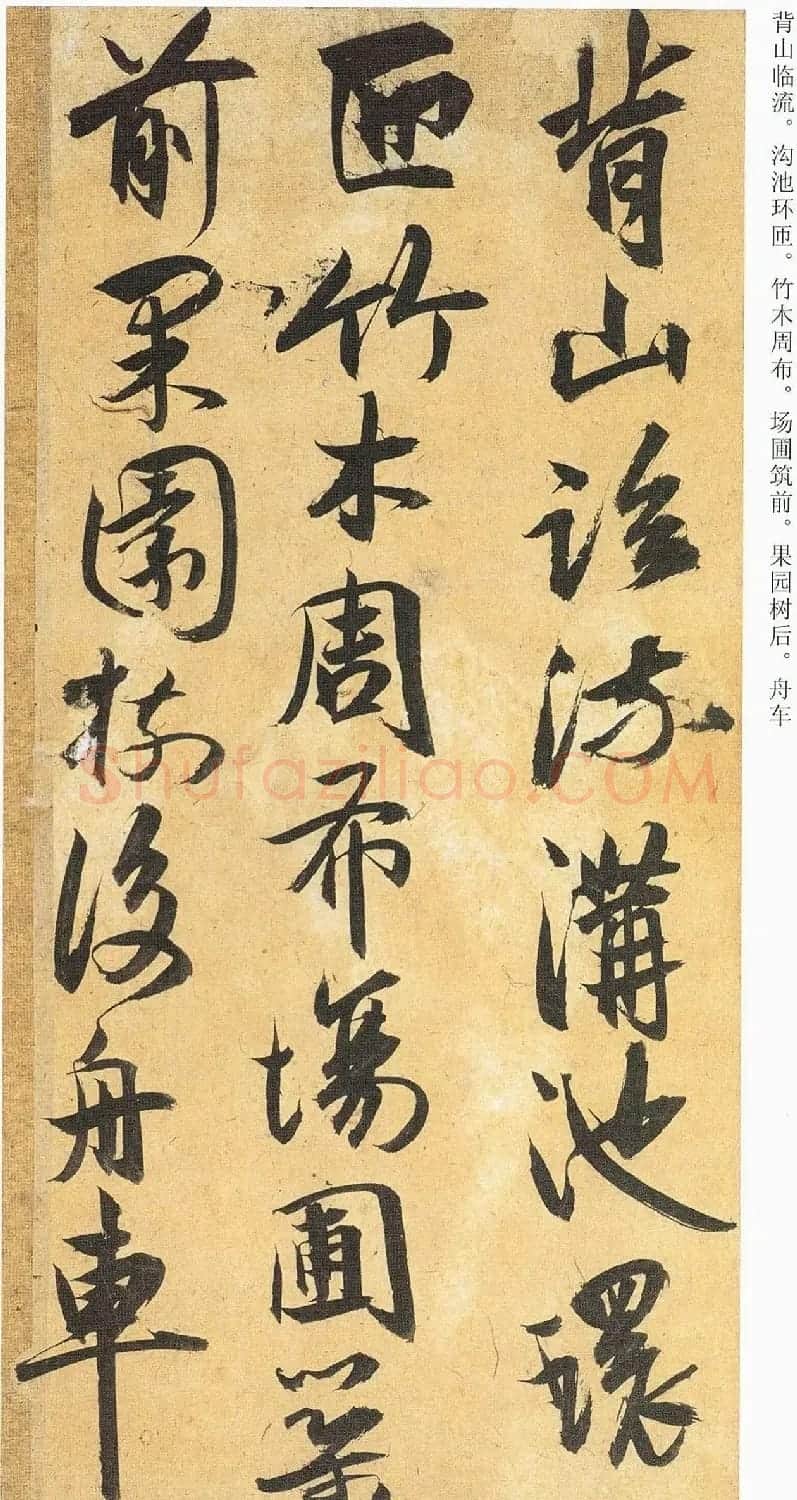 背山临流。沟池环匝。竹木周布。场圃筑前。果园树后。舟车
背山臨流溝池環
匝竹木周布場圃築
前果園樹後舟車
Shufaziliao.COM